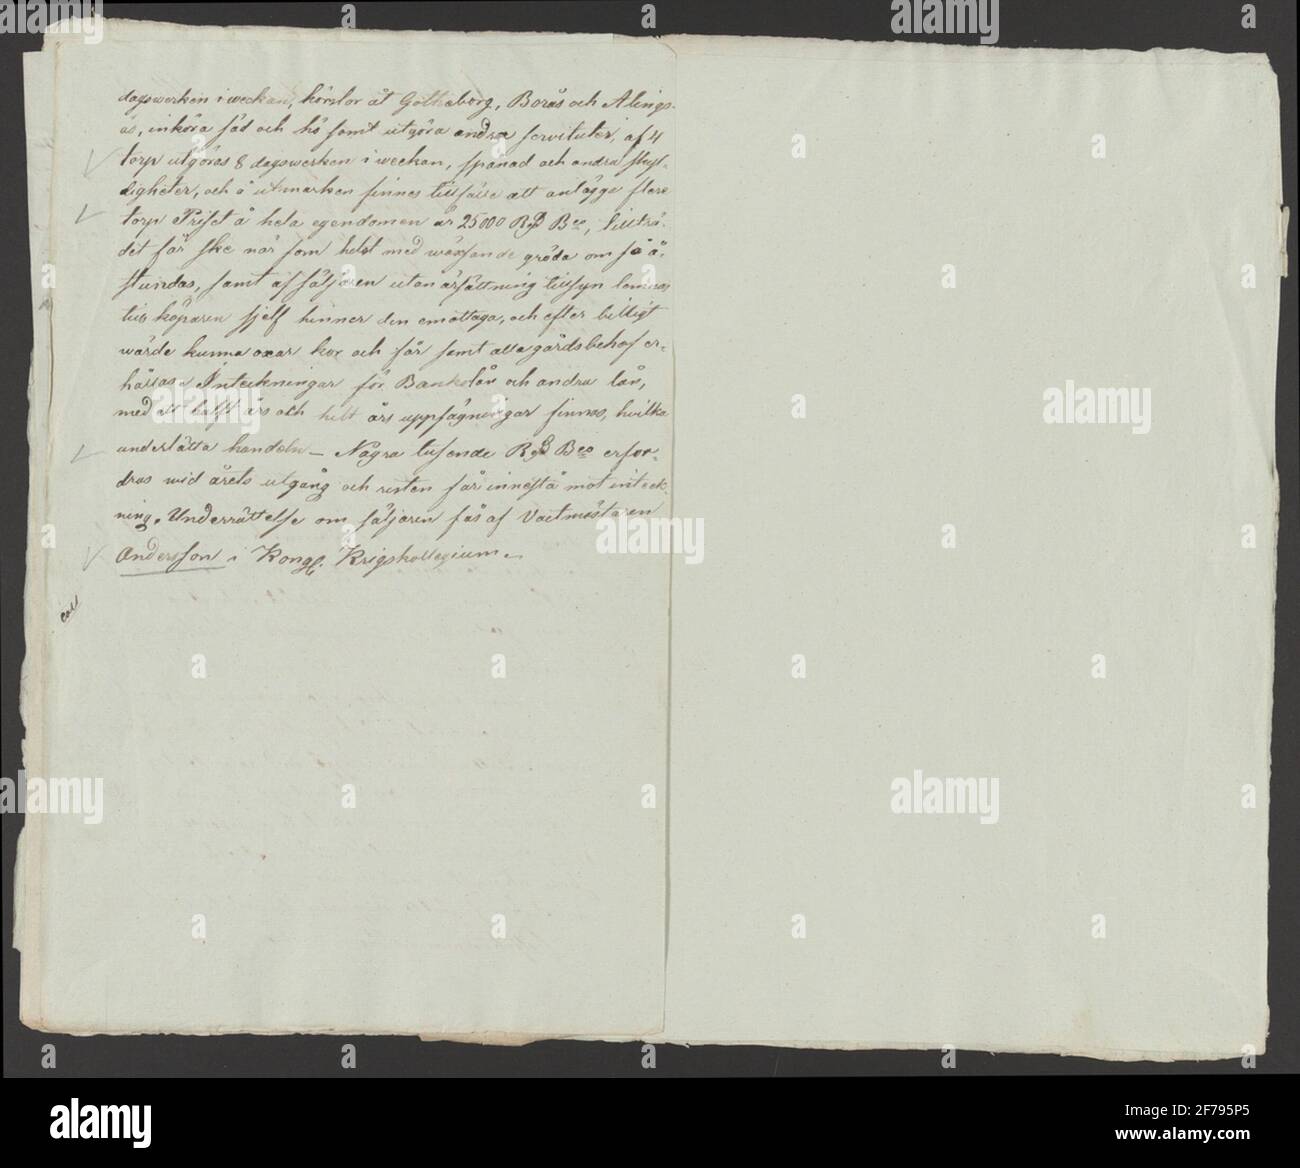 dagswerken i weckan, körslor åt Götheborg, Borås och Alings-
ås, inköra säd och hö samt utgöra andra servituter, af 4
torp utgöras 8 dagswerken i weckan, spånad och andra skyl-
digheter, och å utmarken finnes tillfälle att anlägga flere
torp Priset å hela egendomen är 25000 Rgd Bco, tillträ-
det får ske när som helst med wäxande gröda om så å-
stundas, samt af säljaren utan ärsättning tillsyn lemnas
till köparen sjelf hinner den emottaga, och efter billigt
wärde kunna oxar kor och får samt alla gårdsbehof er-
hållas. Inteckningar för Bankolån och andra lån,
med ett halft års och helt års uppsägningar finnas, hvilka
underlätta handeln — Några tusende Rgd Bco erfor-
dras wid årets utgång och resten får innestå mot inteck-
ning. Underrättelse om säljaren fås af Vactmästaren
Andersson i Kongl. Krigskollegium.
alamy
alamy
Image ID: 2F795P5
www.alamy.com